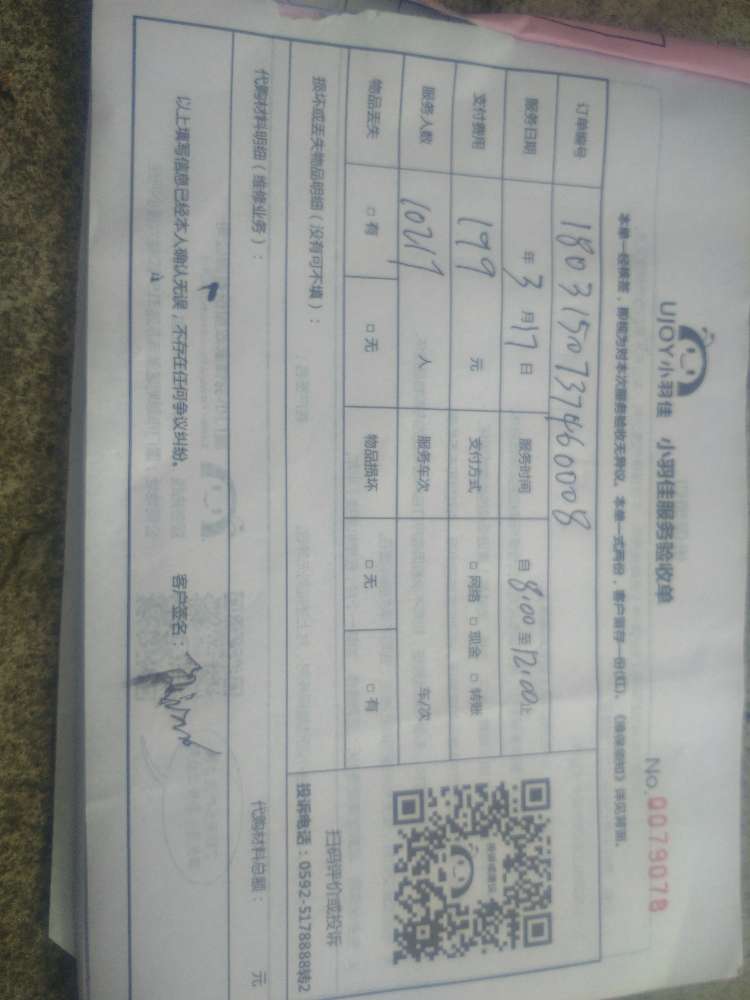 UJOY小羽佳 小羽佳服务验收单
No.0079078
本单一经填签，即视为对本次服务验收无异议。本单一式两份，客户留存一份(红)。《维保须知》详见背面。
订单编号 1803150737460008
服务日期 年3月17日 服务时间 自8:00至12:00止
支付费用 199 元 支付方式 □网络 □现金 □转账
服务人数 人 服务车次 车/次
物品丢失 □有 □无 物品损坏 □无 □有
损坏或丢失物品明细（没有可不填）：
扫码评价或投诉
投诉电话：0592-5178888转2
代购材料明细（维修业务）：
代购材料总额： 元
以上填写信息已经本人确认无误，不存在任何争议纠纷。 客户签名：